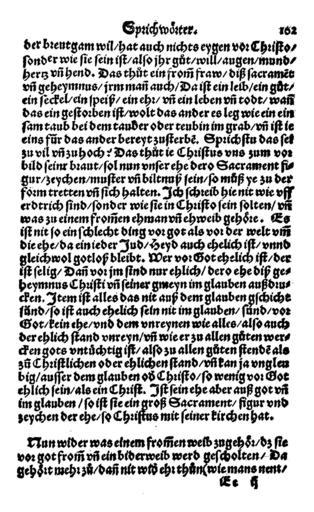 Sprichwörter. 162
der breutgam wil/hat auch nichts eygen vor Christo/
sonder wie sie sein ist/also jhr gůt/will/augen/mund/
hertz vñ hend. Das thůt ein from̃ fraw/diß sacramẽt
vñ geheymnus/jrm mañ auch/Da ist ein leib/ein gůt/
ein seckel/ein speiß/ein ehr/vñ ein leben vñ todt/wañ
das ein gestorben ist/wolt das ander es leg wie ein ein
sam taub bei dem tauber oder teubin im grab/vñ ist ie
eins für das ander bereyt zusterbẽ. Sprichstu das sei
zu vil vñ zu hoch? Das thůt ie Christus vns zum vor
bild seinr braut/sol nun vnser ehe dero Sacrament fi
gur/zeychen/muster vñ biltnuß sein/so můß ye zu der
form tretten vñ sich halten. Ich schreib hie nit wie vff
erdtrich sind/sonder wie sie in Christo sein solten/vñ
was zu einem from̃en ehman vñ ehweib gehöre. Es
ist nit so ein schlecht ding vor got als vor der welt vm̃
die ehe/da ein ieder Jud/Heyd auch ehelich ist/vnnd
gleichwol gotloß bleibt. Wer vor Got ehelich ist/der
ist selig/Dañ vor jm sind nur ehlich/dero ehe diß ge-
heymnus Christi vñ seiner gmeyn im glauben außdru-
cken. Item ist alles das nit auß dem glauben gschicht
sünd/so ist auch ehelich sein nit im glauben/sünd/vor
Got/kein ehe/vnd dem vnreynen wie alles/also auch
der ehlich stand vnreyn/vñ wie er zu allen gůten wer-
cken gots vntüchtig ist/also zu allen gůten stende als
zů Christlichen oder ehlichen stand/vñ kan ja vnglau
big/ausser dem glauben ob Christo/so wenig vor Got
ehlich sein/als ein Christ. Ist sein ehe aber auß got vñ
im glauben/so ist sie ein groß Sacrament/figur vnd
zeychen der ehe/so Christus mit seiner kirchen hat.
Nun wider was einem from̃en weib zugehör/dz sie
vor got from̃ vñ ein biderweib werd gescholten/Da
gehört mehr zů/dañ nit wie ehr thůn (wie mans nent/
Ee ij